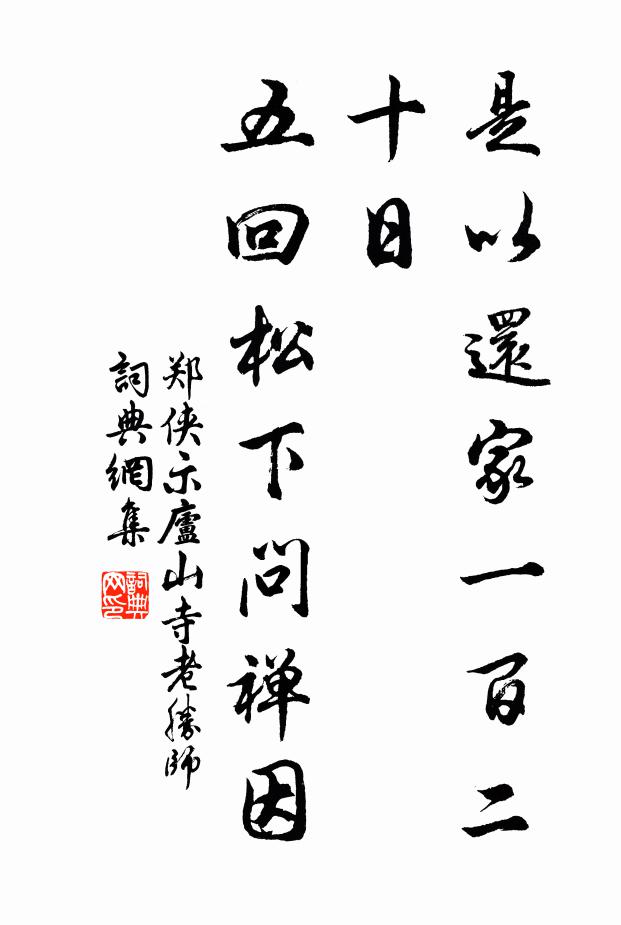 是以還家一百二
十日
五回松下問禅因
郑侠示廬山寺老勝師
詞典網集
詞典网印